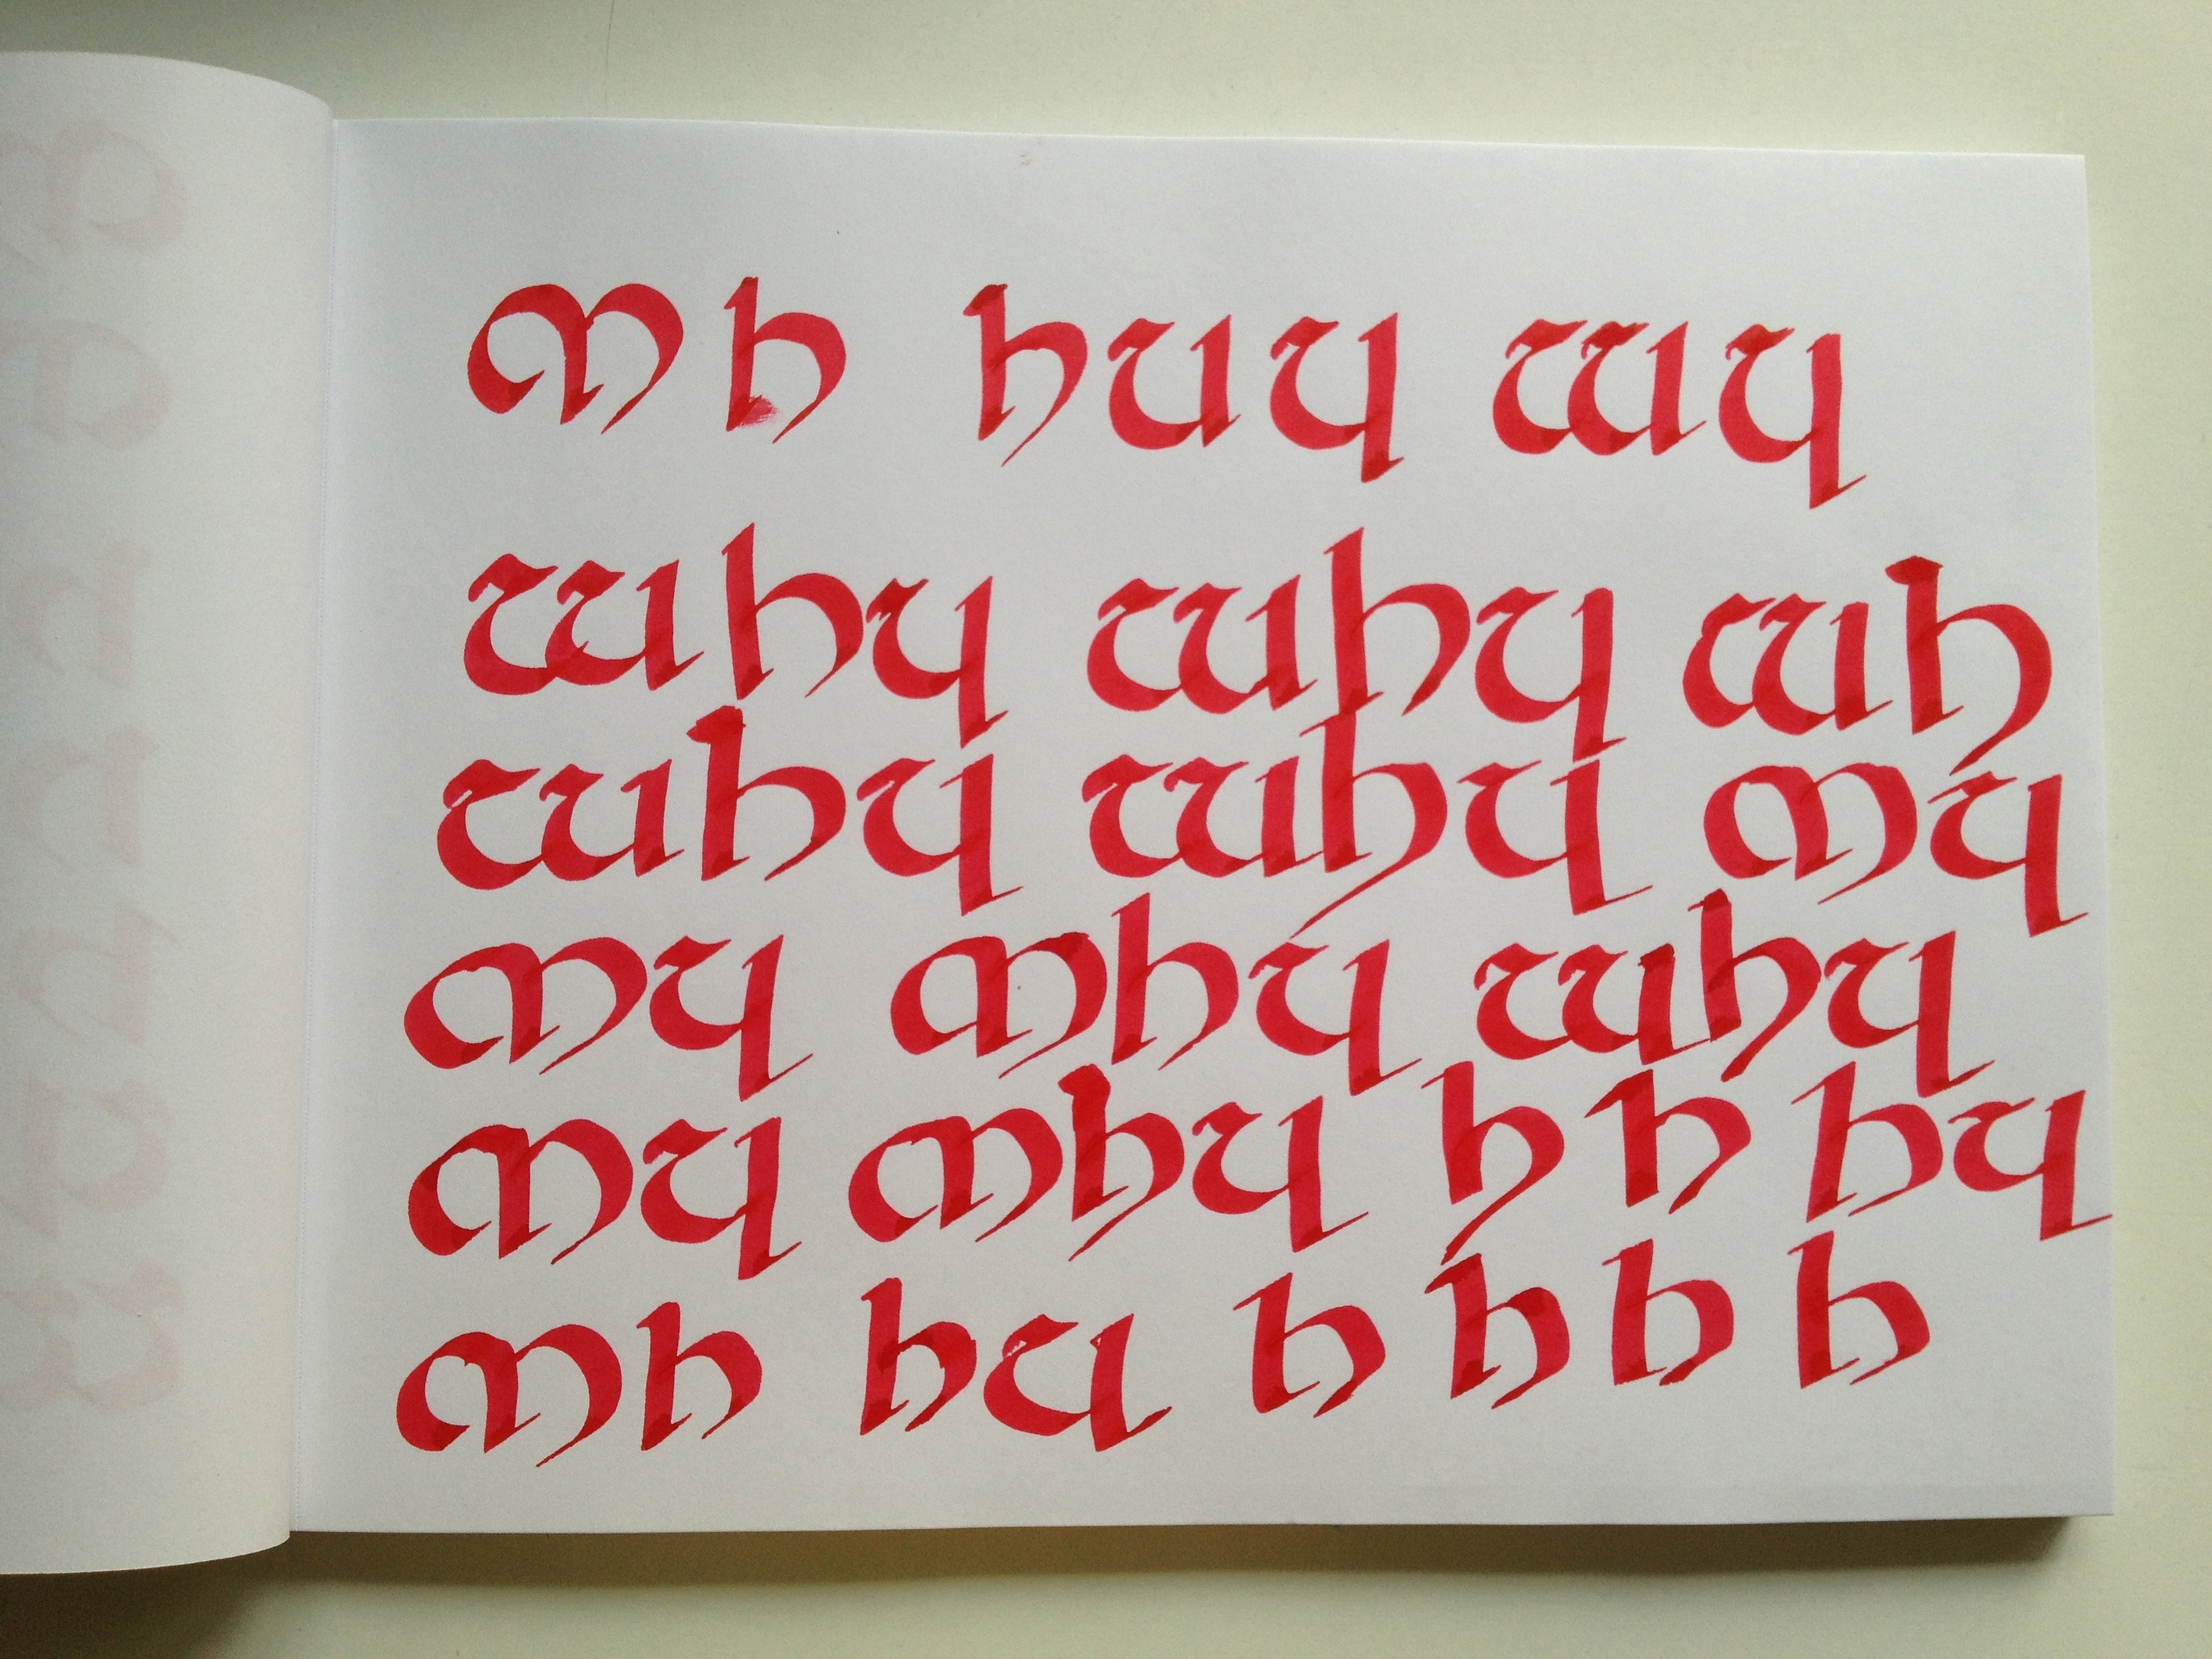 mh huy wy
why why wh
why why my
my mhy why
my mhy h h hy
mh hu h h h h